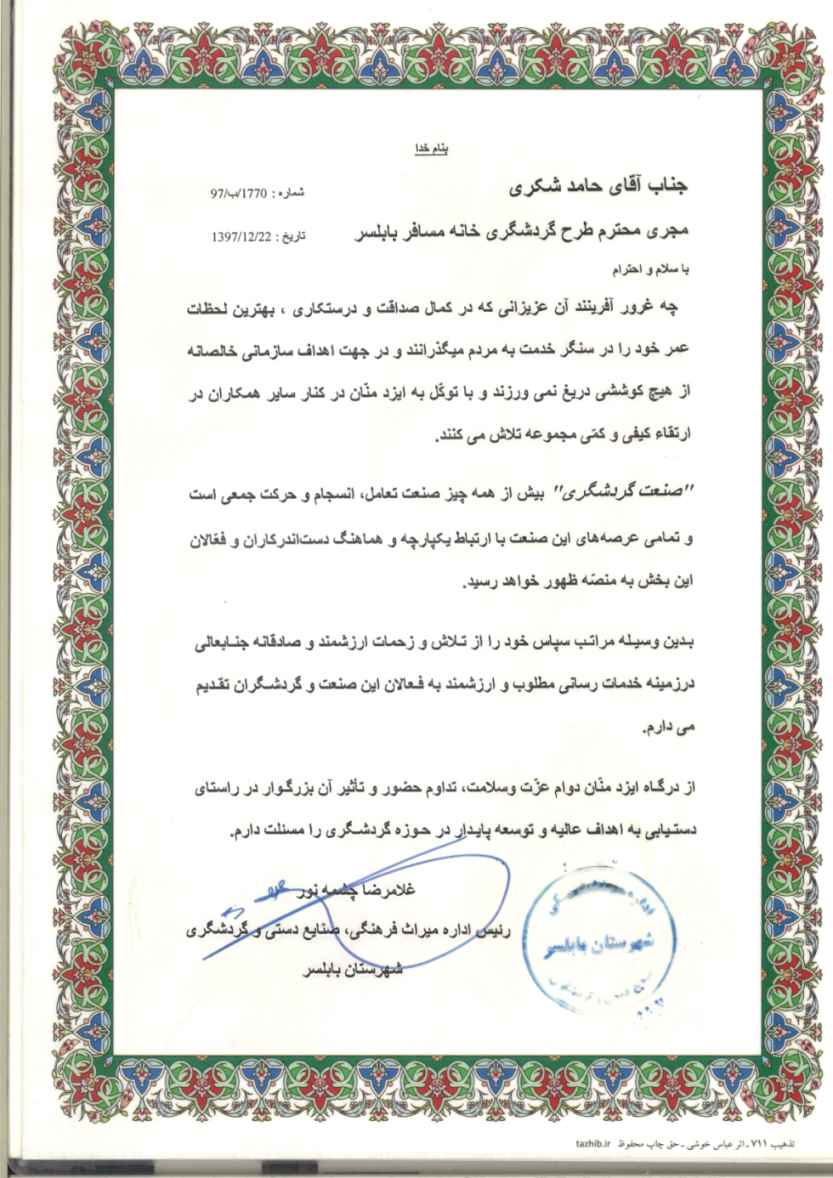 بنام خدا
جناب آقای حامد شکری
شماره : 1770/ب/97
مجری محترم طرح گردشگری خانه مسافر بابلسر
تاریخ : 1397/12/22
با سلام و احترام
چه غرور آفرینند آن عزیزانی که در کمال صداقت و درستکاری ، بهترین لحظات
عمر خود را در سنگر خدمت به مردم میگذرانند و در جهت اهداف سازمانی خالصانه
از هیچ کوششی دریغ نمی ورزند و با توکّل به ایزد منّان در کنار سایر همکاران در
ارتقاء کیفی و کمّی مجموعه تلاش می کنند.
"صنعت گردشگری" بیش از همه چیز صنعت تعامل، انسجام و حرکت جمعی است
و تمامی عرصه‌های این صنعت با ارتباط یکپارچه و هماهنگ دست‌اندرکاران و فعّالان
این بخش به منصّه ظهور خواهد رسید.
بدین وسیله مراتب سپاس خود را از تلاش و زحمات ارزشمند و صادقانه جنابعالی
درزمینه خدمات رسانی مطلوب و ارزشمند به فعالان این صنعت و گردشگران تقدیم
می دارم.
از درگاه ایزد منّان دوام عزّت وسلامت، تداوم حضور و تأثیر آن بزرگوار در راستای
دستیابی به اهداف عالیه و توسعه پایدار در حوزه گردشگری را مسئلت دارم.
غلامرضا چشمه نور
رئیس اداره میراث فرهنگی، صنایع دستی و گردشگری
شهرستان بابلسر
اداره
شهرستان بابلسر
تذهیب ۷۱۱ ـ اثر عباس خوشی ـ حق چاپ محفوظ tazhib.ir